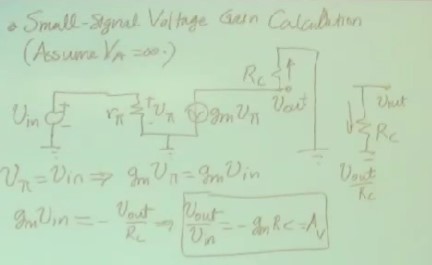 • Small-Signal Voltage Gain Calculation
(Assume VA = ∞.)
Rc
Vin
rπ
+
Vπ
-
gmVπ
Vout
Vout
Rc
Vout/Rc
Vπ = Vin ⇒ gmVπ = gmVin
gmVin = - Vout/Rc ⇒ Vout/Vin = - gmRc = Av